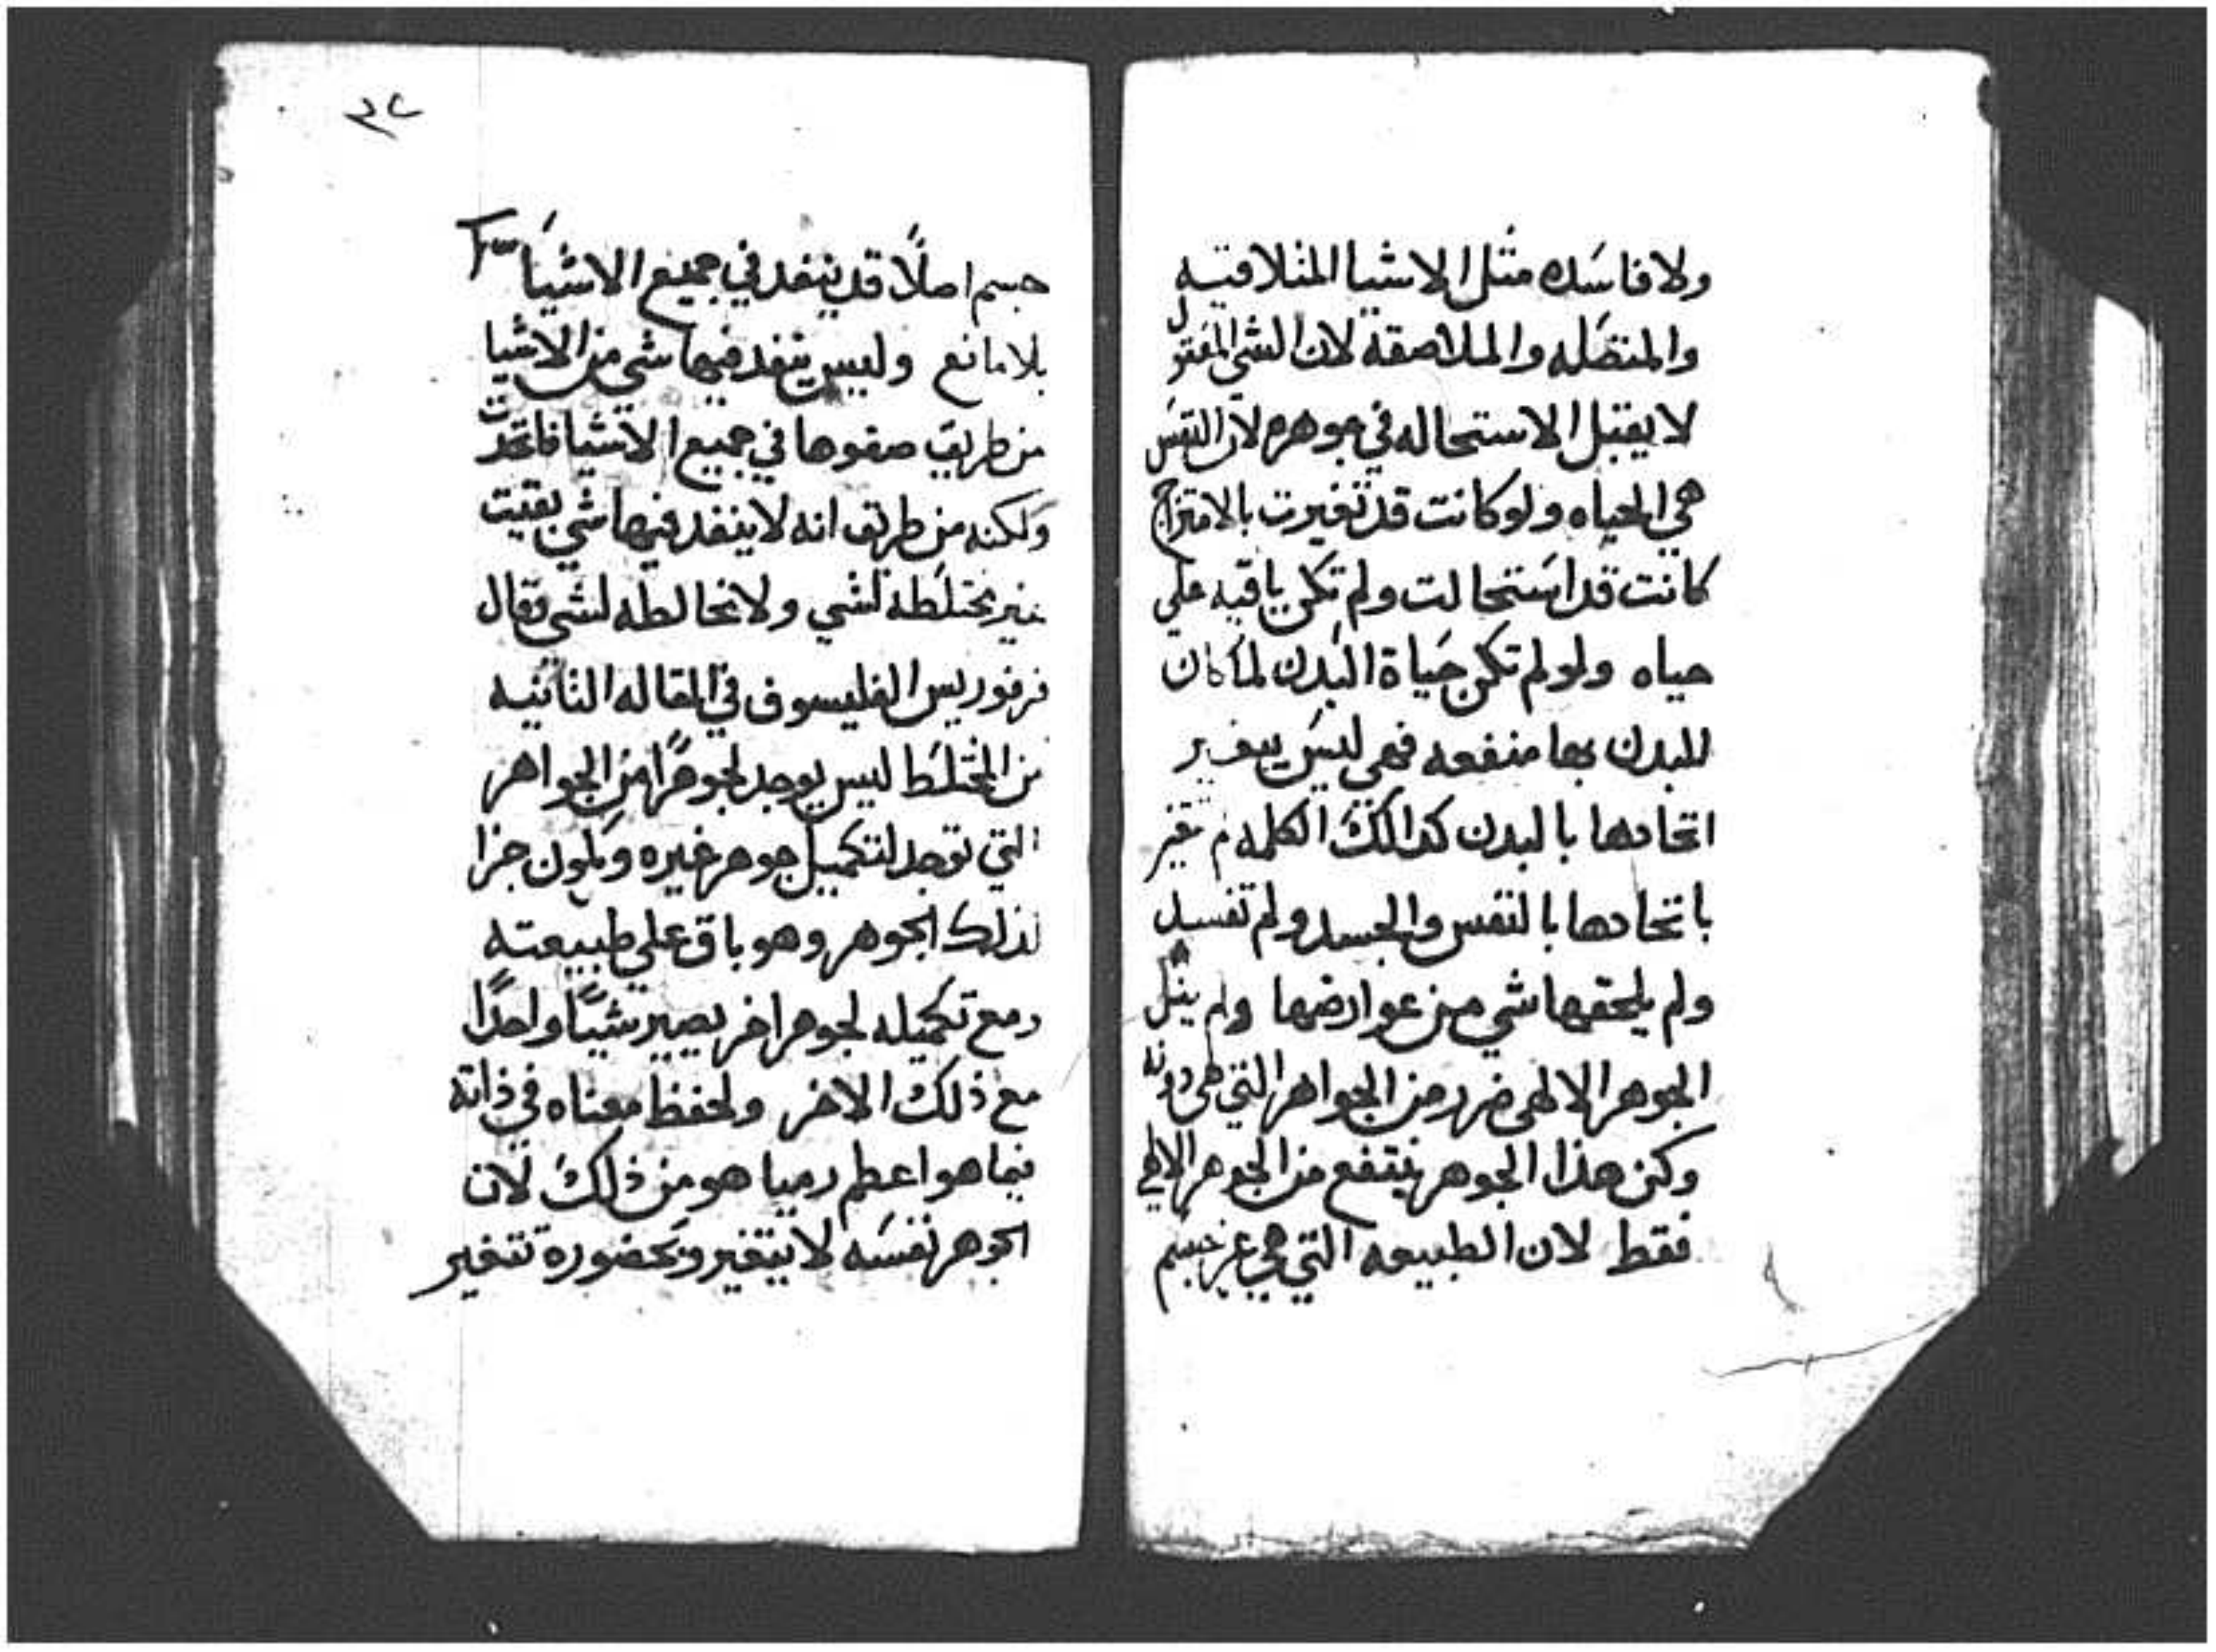 ولا فاسده مثل الاشيا المتلاقيه
والمتصله والملاصقة لان الشي المعقول
لا يقبل الاستحاله في جوهره لان النفس
هي الحياه ولو كانت قد تغيرت بالامتزاج
كانت قد استحالت ولم تكن باقيه علي
حياه ولو لم تكن حياة البدن لما كان
للبدن بها منفعه فهي ليس يتغير
اتحادها بالبدن كدالك الكلمه لم تتغير
باتحادها بالنفس والجسد ولم تفسد
ولم يلحقها شي من عوارضها ولم ينل
الجوهر الالهي ضرر من الجواهر التي هي دونه
ولكن هذا الجوهر ينتفع من الجوهر الالهي
فقط لان الطبيعه التي هي غير جسم
٣٢
جسم اصلاً قد ينفد في جميع الاشيا
بلا مانع وليس ينفد فيها شي من الاشيا
من طريق صفوها في جميع الاشيا فاتحدت
ولكنه من طريق انه لا ينفد فيها شي بقيت
غير مختلطه لشي ولا مخالطه لشي وقال
فرفوريس الفليسوف في المقاله الثانيه
من المختلط ليس يوجد لجوهرًا من الجواهر
التي توجد لتكميل جوهر غيره ويكون جزا
لذلك الجوهر وهو باق علي طبيعته
ومع تكميله لجوهر اخر يصير شيًا واحدًا
مع ذلك الاخر ولحفظ معناه في ذاته
فيما هو اعظم هو من ذلك لان
الجوهر نفسه لا يتغير وبحضوره تتغير